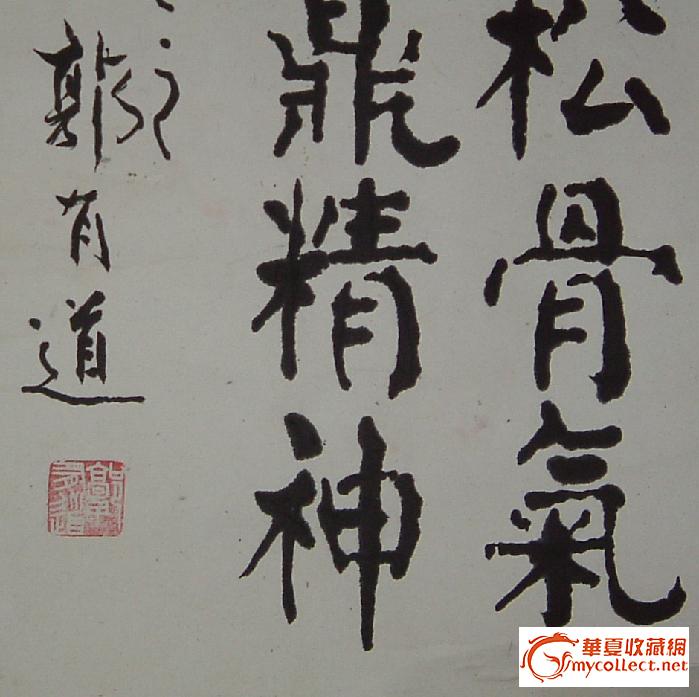 松骨氣
鼎精神
郭有道
華夏收藏網
mycollect.net